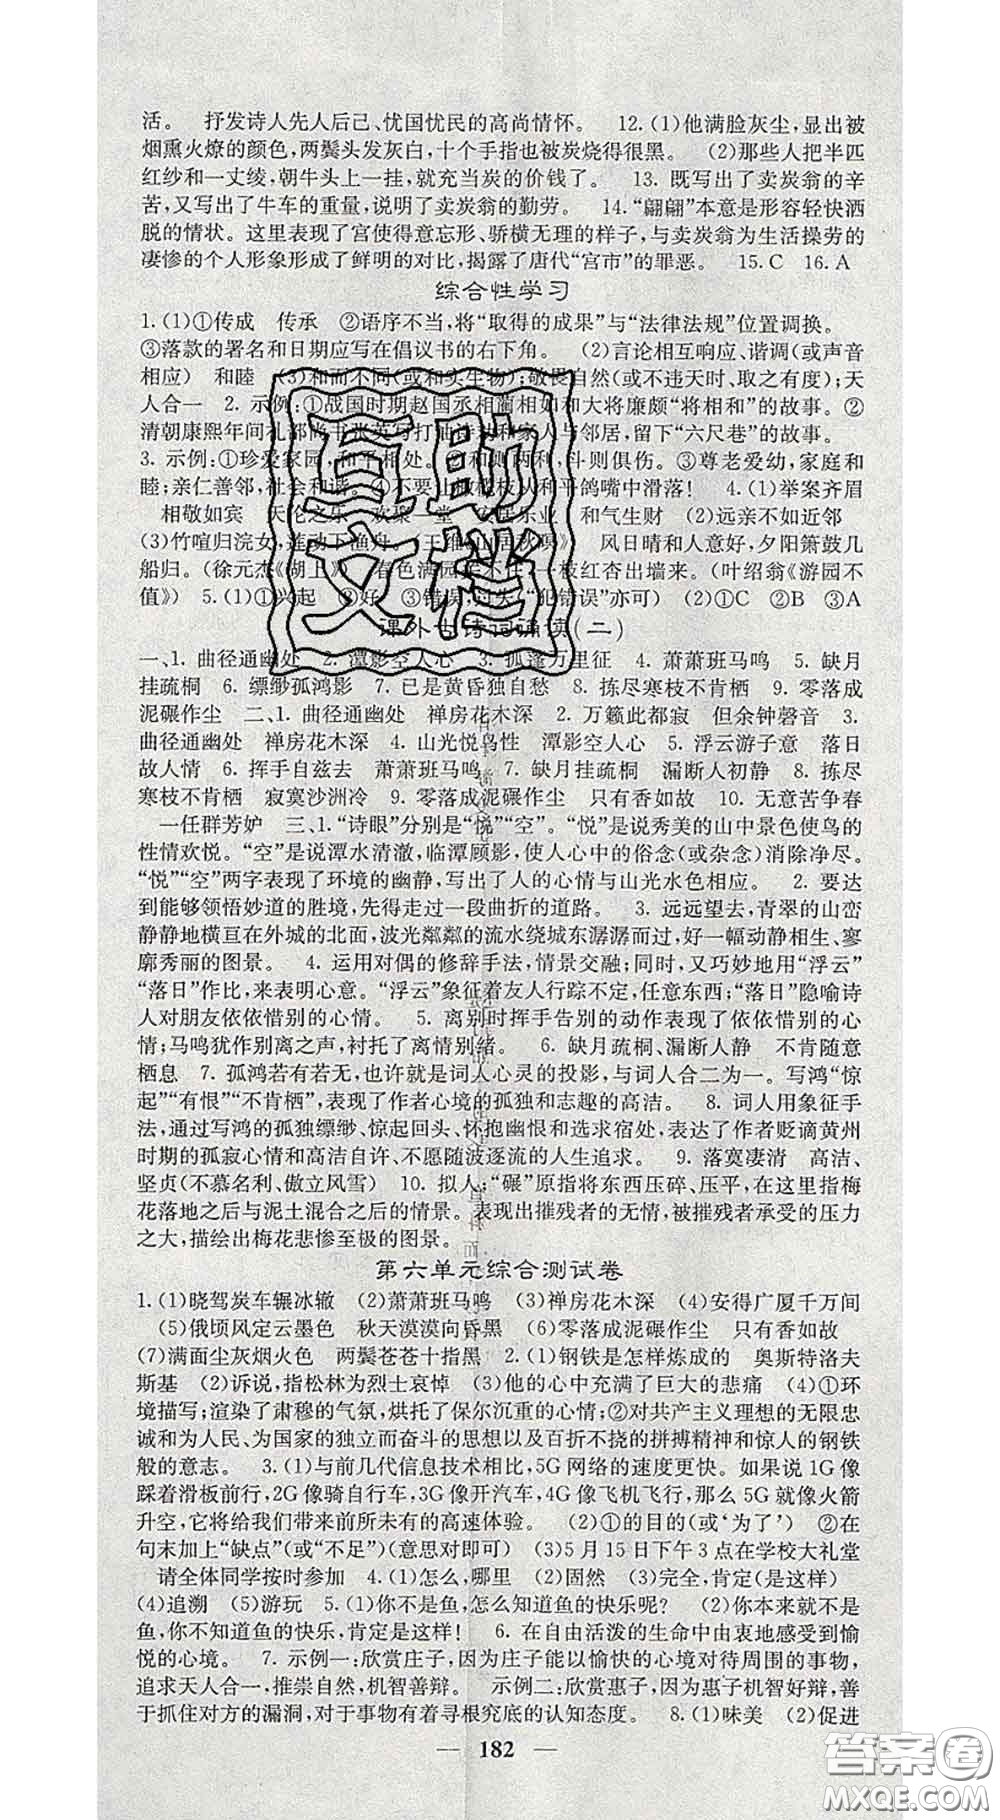 活。 抒发诗人先人后己、忧国忧民的高尚情怀。 12.(1)他满脸灰尘,显出被
烟熏火燎的颜色,两鬓头发灰白,十个手指也被炭烧得很黑。 (2)那些人把半匹
红纱和一丈绫,朝牛头上一挂,就充当炭的价钱了。 13. 既写出了卖炭翁的辛
苦,又写出了牛车的重量,说明了卖炭翁的勤劳。 14.“翩翩”本意是形容轻快洒
脱的情状。这里表现了宫使得意忘形、骄横无理的样子,与卖炭翁为生活操劳的
凄惨的个人形象形成了鲜明的对比,揭露了唐代“宫市”的罪恶。 15.C 16.A
综合性学习
1.(1)①传成 传承 ②语序不当,将“取得的成果”与“法律法规”位置调换。
③落款的署名和日期应写在倡议书的右下角。 (2)言论相互响应、谐调(或声音
相应) 和睦 (3)和而不同(或和实生物);敬畏自然(或不违天时、取之有度);天
人合一 2. 示例:①战国时期赵国丞相蔺相如和大将廉颇“将相和”的故事。②
清朝康熙年间礼部尚书张英写打油诗 和家人与邻居,留下“六尺巷”的故事。
3. 示例:①珍爱家园,和平相处。②和则两利,斗则俱伤。③尊老爱幼,家庭和
睦;亲仁善邻,社会和谐。④不要让橄榄枝从和平鸽嘴中滑落! 4.(1)举案齐眉
相敬如宾 天伦之乐 欢聚一堂 安居乐业 和气生财 (2)远亲不如近邻
(3)竹喧归浣女,莲动下渔舟。(王维《山居秋暝》) 风日晴和人意好,夕阳箫鼓几
船归。(徐元杰《湖上》) 春色满园关不住,一枝红杏出墙来。(叶绍翁《游园不
值》) 5.(1)①兴起 ②好 ③错误,过失(“犯错误”亦可) (2)①C ②B ③A
课外古诗词诵读(二)
一、1. 曲径通幽处 2. 潭影空人心 3. 孤蓬万里征 4. 萧萧班马鸣 5. 缺月
挂疏桐 6. 缥缈孤鸿影 7. 已是黄昏独自愁 8. 拣尽寒枝不肯栖 9. 零落成
泥碾作尘 二、1. 曲径通幽处 禅房花木深 2. 万籁此都寂 但余钟磬音 3.
曲径通幽处 禅房花木深 4. 山光悦鸟性 潭影空人心 5. 浮云游子意 落日
故人情 6. 挥手自兹去 萧萧班马鸣 7. 缺月挂疏桐 漏断人初静 8. 拣尽
寒枝不肯栖 寂寞沙洲冷 9. 零落成泥碾作尘 只有香如故 10. 无意苦争春
一任群芳妒 三、1.“诗眼”分别是“悦”“空”。“悦”是说秀美的山中景色使鸟的
性情欢悦。“空”是说潭水清澈,临潭顾影,使人心中的俗念(或杂念)消除净尽。
“悦”“空”两字表现了环境的幽静,写出了人的心情与山光水色相应。 2. 要达
到能够领悟妙道的胜境,先得走过一段曲折的道路。 3. 远远望去,青翠的山峦
静静地横亘在外城的北面,波光粼粼的流水绕城东潺潺而过,好一幅动静相生、寥
廓秀丽的图景。 4. 运用对偶的修辞手法,情景交融;同时,又巧妙地用“浮云”
“落日”作比,来表明心意。“浮云”象征着友人行踪不定,任意东西;“落日”隐喻诗
人对朋友依依惜别的心情。 5. 离别时挥手告别的动作表现了依依惜别的心
情;马鸣犹作别离之声,衬托了离情别绪。 6. 缺月疏桐、漏断人静 不肯随意
栖息 7. 孤鸿若有若无,也许就是词人心灵的投影,与词人合二为一。写鸿“惊
起”“有恨”“不肯栖”,表现了作者心境的孤独和志趣的高洁。 8. 词人用象征手
法,通过写鸿的孤独缥缈、惊起回头、怀抱幽恨和选求宿处,表达了作者贬谪黄州
时期的孤寂心情和高洁自许、不愿随波逐流的人生追求。 9. 落寞凄清 高洁、
坚贞(不慕名利、傲立风雪) 10. 拟人;“碾”原指将东西压碎、压平,在这里指梅
花落地之后与泥土混合之后的情景。表现出摧残者的无情,被摧残者承受的压力
之大,描绘出梅花悲惨至极的图景。
第六单元综合测试卷
1.(1)晓驾炭车辗冰辙 (2)萧萧班马鸣 (3)禅房花木深 (4)安得广厦千万间
(5)俄顷风定云墨色 秋天漠漠向昏黑 (6)零落成泥碾作尘 只有香如故
(7)满面尘灰烟火色 两鬓苍苍十指黑 2.(1)钢铁是怎样炼成的 奥斯特洛夫
斯基 (2)诉说,指松林为烈士哀悼 (3)他的心中充满了巨大的悲痛 (4)①环
境描写;渲染了肃穆的气氛,烘托了保尔沉重的心情;②对共产主义理想的无限忠
诚和为人民、为国家的独立而奋斗的思想以及百折不挠的拼搏精神和惊人的钢铁
般的意志。 3.(1)与前几代信息技术相比,5G网络的速度更快。如果说1G像
踩着滑板前行,2G像骑自行车,3G像开汽车,4G像飞机飞行,那么5G就像火箭
升空,它将给我们带来前所未有的高速体验。 (2)①的目的(或‘为了’) ②在
句末加上“缺点”(或“不足”)(意思对即可) (3)5月15日下午3点在学校大礼堂
请全体同学按时参加 4.(1)怎么,哪里 (2)固然 (3)完全,肯定(是这样)
(4)追溯 (5)游玩 5.(1)你不是鱼,怎么知道鱼的快乐呢? (2)你本来就不是
鱼,你不知道鱼的快乐,肯定是这样! 6. 在自由活泼的生命中由衷地感受到愉
悦的心境。 7. 示例一:欣赏庄子,因为庄子能以愉快的心境对待周围的事物,
追求天人合一,推崇自然,机智善辩。 示例二:欣赏惠子,因为惠子机智好辩,善
于抓住对方的漏洞,对于事物有着寻根究底的认知态度。 8.(1)味美 (2)促进
— 182 —
互助
文档
答案圈
MXQE.COM